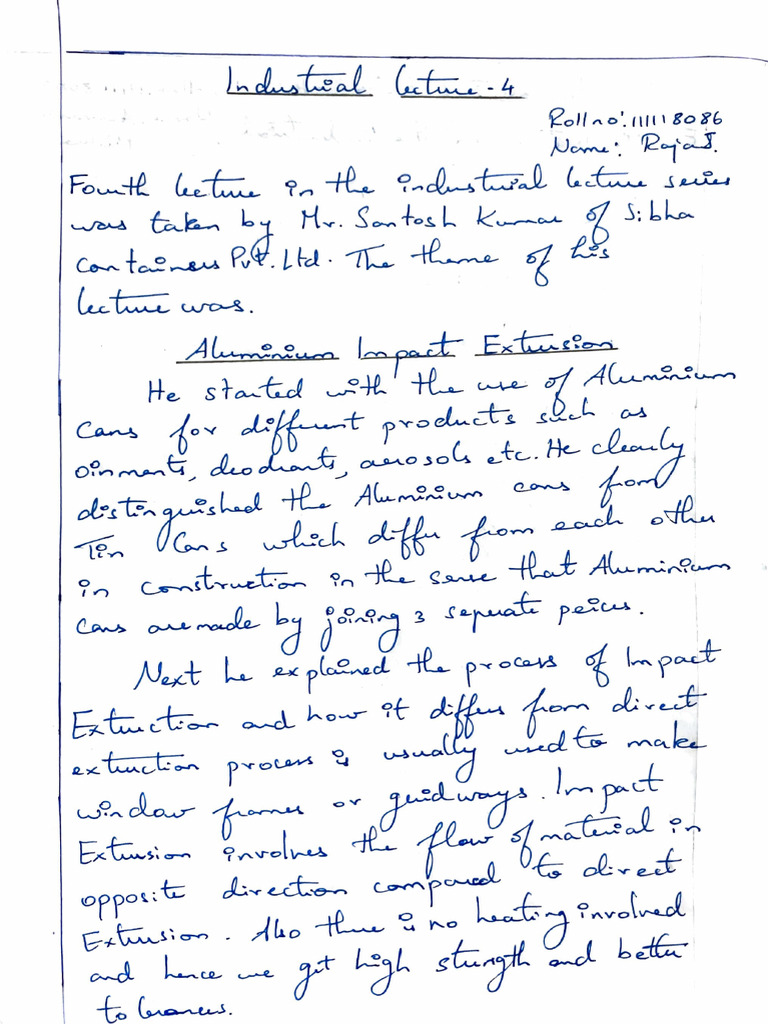 Industrial Lecture - 4
Roll no: 111118086
Name: Raja S.
Fourth lecture in the industrial lecture series
was taken by Mr. Santosh Kumar of Sibha
Containers Pvt. Ltd. The theme of his
lecture was.
Aluminium Impact Extrusion
He started with the use of Aluminium
Cans for different products such as
oinments, deodrants, aerosols etc. He clearly
distinguished the Aluminium cans from
Tin Cans which differ from each other
in construction in the sense that Aluminium
Cans are made by joining 3 seperate peices.
Next he explained the process of Impact
Extruction and how it differs from direct
extruction process is usually used to make
window frames or guidways. Impact
Extrusion involves the flow of material in
opposite direction compared to direct
Extrusion. Also there is no heating involved
and hence we get high strength and better
tolerances.